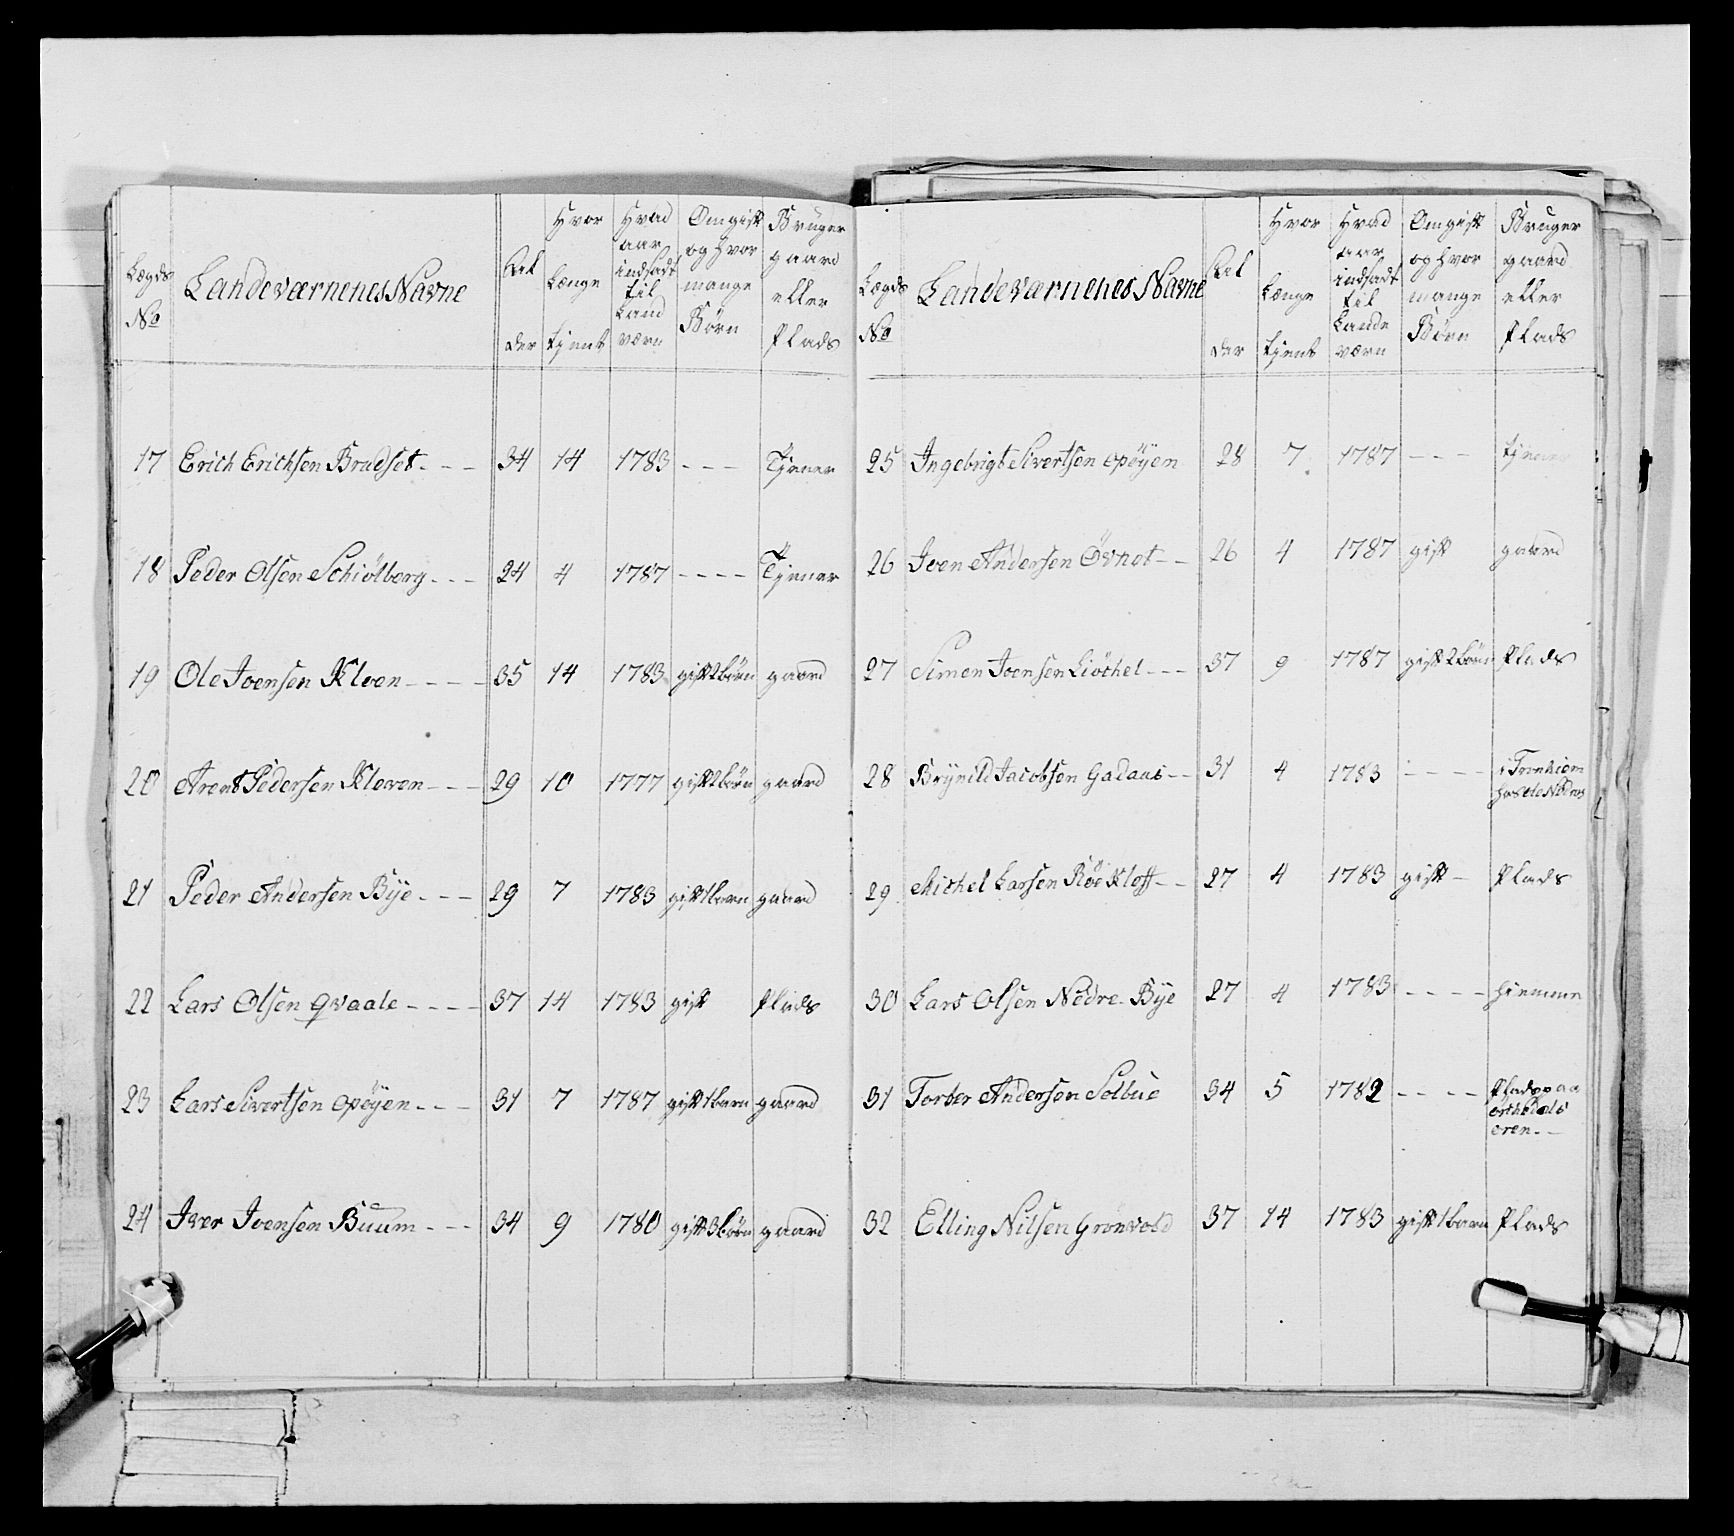 Lægds No | Landeværnenes Navne | Alder | Hvor Længe tjent | Hvad aar indsadt til Land værn | Om gift og hvor mange Börn | Bruger gaard eller Plads
17 Erich Erichsen Bradset - - - 34 14 1783 - - - Tjener
18 Peder Olsen Schiölberg - - - 24 4 1787 - - - - Tjener
19 Ole Joensen Kleven - - - - 35 14 1783 gift börn gaard
20 Arent Pedersen Kleven - - - 29 10 1777 gift börn gaard
21 Peder Andersen Bÿe - - - 29 7 1783 gift 1 barn gaard
22 Lars Olsen Qvaale - - - - 37 14 1783 gift Plads
23 Lars Sivertsen Opöÿen - - - 31 7 1787 gift 1 barn gaard
24 Iver Joensen Buum - - - 34 9 1780 gift 3 börn gaard
Lægds No | Landeværnenes Navne | Alder | Hvor Længe tjent | Hvad aar indsadt til Lande værn | Om gift og hvor mange Börn | Bruger gaard eller Plads
25 Ingebrigt Sivertsen Opöÿen 28 7 1787 - - - tjener
26 Joen Andersen Övnot - - 26 4 1787 gift gaard
27 Simen Joensen Liöchel - - - 37 9 1787 gift 2 börn Plads
28 Brÿnild Jacobsen Gadaas - - 31 4 1783 - - - - i Tronhiem
hos
29 Michel Larsen Röe Kloff - - 27 4 1783 gift - Plads
30 Lars Olsen Nedre Bÿe 27 4 1783 - - - - hiemme
31 Torber Andersen Solbue 34 5 1782 - - - - Plads paa
orchedals
ören - -
32 Elling Nilsen Grönvold 37 14 1783 gift 1 barn Plads